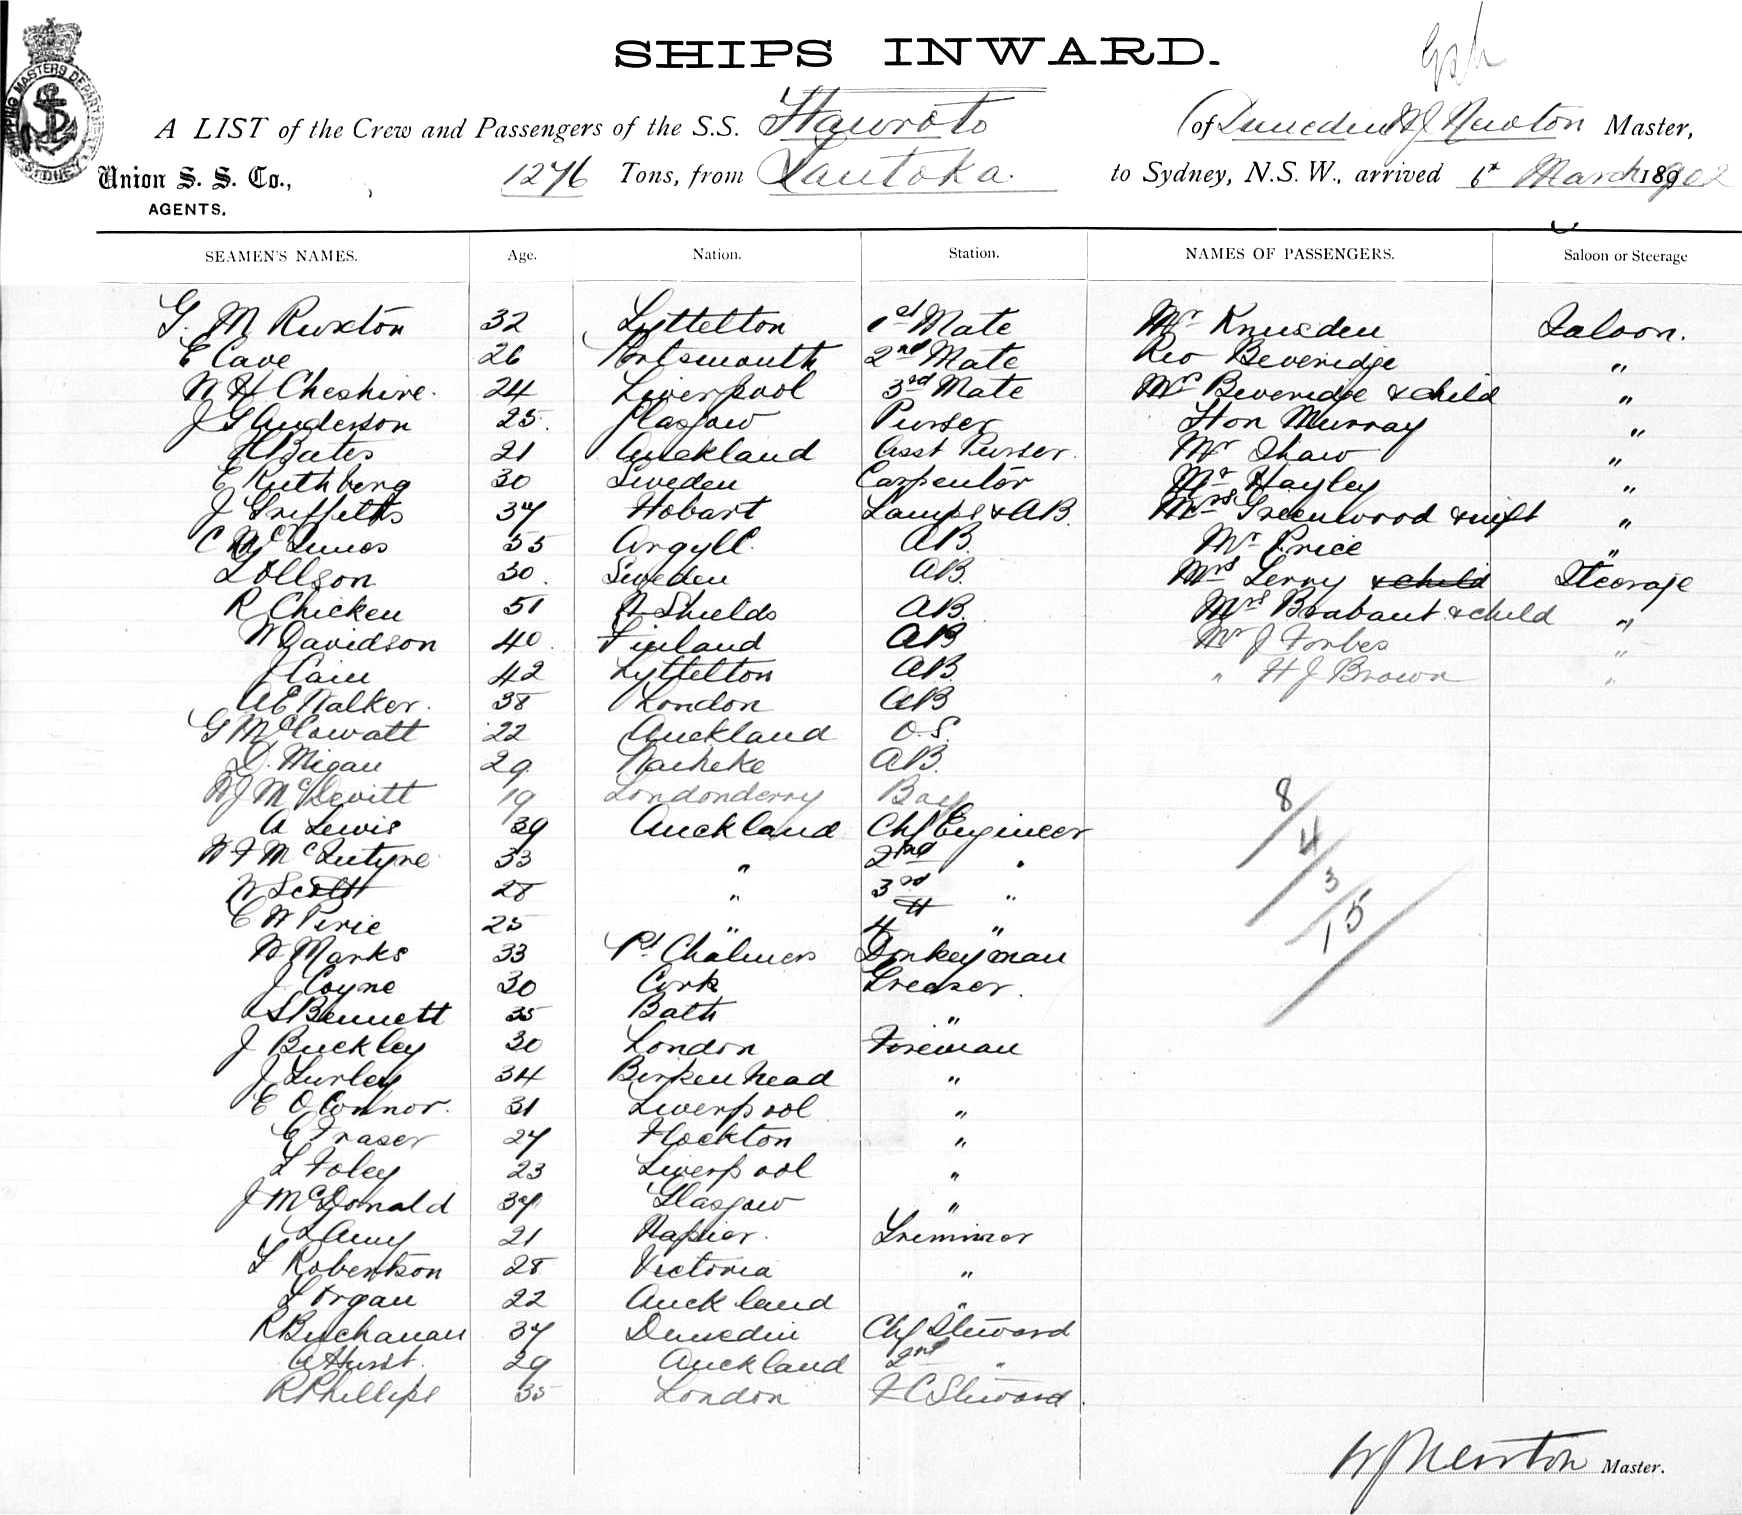 SHIPS INWARD.
SHIPPING MASTERS DEPARTMENT SYDNEY
A LIST of the Crew and Passengers of the S.S. Hawroto (of Dunedin W J Newton Master,
Union S. S. Co., 1276 Tons, from Lautoka. to Sydney, N.S.W., arrived 6th March 1902
AGENTS.
SEAMEN'S NAMES. Age. Nation. Station. NAMES OF PASSENGERS. Saloon or Steerage
G. M Ruxton 32 Lyttelton 1st Mate Mr Knusden Saloon.
E Cave 26 Portsmouth 2nd Mate Rev Beveridge "
W H Cheshire. 24 Liverpool 3rd Mate Mrs Beveridge & child "
J G Anderson 25. Glasgow Purser Hon Murray "
H Bates 21 Auckland Asst Purser. Mr Shaw "
E Ruthberg 30 Sweden Carpenter Mr Hayley "
J Griffiths 37 Hobart Lamps & AB. Mrs Greenwood & inft "
C McInnes 55 Argyll. AB. Mr Price "
L Ollson 30. Sweden AB. Mrs Lenny & child Steerage
R Chicken 51 N Shields AB. Mrs Brabant & child "
W Davidson 40. Finland AB Mr J Forbes "
J Cain 42 Lyttelton AB. " H J Brown "
A E Walker. 38 London AB
G McCowatt 22 Auckland O.S.
D. Migan 29. Waiheke AB.
W J McDevitt 19 Londonderry Boy 8
A Lewis 39 Auckland Chf Engineer 4
W F McIntyre 33 " 2nd " 3
W Scott 28 " 3rd " 15
C W Pirie 25 " 4 "
W Marks 33 Pt Chalmers Donkeyman
J Coyne 30 Cork Greaser.
A S Bennett 35 Bath "
J Buckley 30 London Fireman
J Lurley 34 Birkenhead "
E O Connor. 31 Liverpool "
G Fraser 27 Stockton "
L Foley 23 Liverpool "
J McDonald 37 Glasgow "
L Amy 21 Napier. Trimmer
L Robertson 28 Victoria "
L Organ 22 Auckland "
R Buchanan 37 Dunedin Chf Steward
A Hurst. 29 Auckland 2nd "
R Phillips 35 London F C Steward.
W J Newton Master.